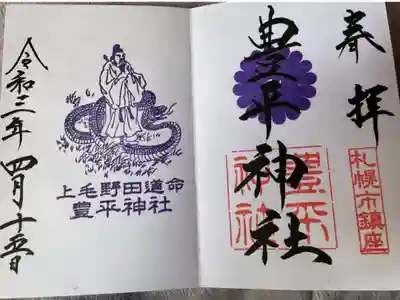 奉拝
札幌市鎮座
豊平神社
豊平神社
上毛野田道命
豊平神社
令和三年 四月十五日